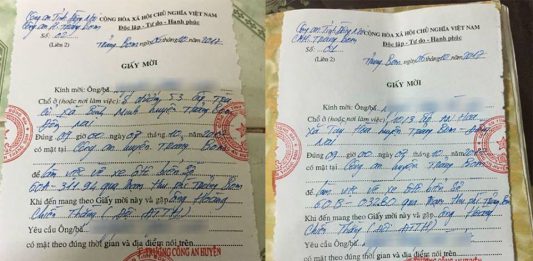 Công an Tỉnh Đồng Nai
CỘNG HÒA XÃ HỘI CHỦ NGHĨA VIỆT NAM
Công an H. Trảng Bom
Độc lập - Tự do - Hạnh phúc
Số: 02
(Liên 2)
Trảng Bom, ngày 06 tháng 10 năm 2017
GIẤY MỜI
Kính mời: Ông/bà
Chỗ ở (hoặc nơi làm việc): 5 đường 53 ấp
xã Bình Minh huyện Trảng Bom
Đồng Nai
Đúng 09 giờ 00 ngày 09 tháng 10 năm
có mặt tại Công an huyện Trảng Bom
để làm việc về xe ôtô biển số
60A-311.94 qua trạm thu phí Trảng Bom
Khi đến mang theo Giấy mời này và gặp ông Hoàng
Chiến Thắng (Đội ATTH)
Yêu cầu Ông/bà
có mặt theo đúng thời gian và địa điểm nói trên
TRƯỞNG CÔNG AN HUYỆN
Công an Tỉnh Đồng Nai
CỘNG HÒA XÃ HỘI CHỦ NGHĨA VIỆT NAM
CAH. Trảng Bom
Độc lập - Tự do - Hạnh phúc
Số: 01
(Liên 2)
Trảng Bom, ngày 06 tháng 10 năm 2017
GIẤY MỜI
Kính mời: Ông/bà
Chỗ ở (hoặc nơi làm việc):
xã Tây Hòa huyện Trảng Bom - Đồng
Nai
Đúng 09 giờ 00 ngày 09 tháng 10 năm
có mặt tại Công an huyện Trảng Bom
để làm việc về xe ôtô biển số
60B-03260 qua trạm thu phí Trảng Bom
Khi đến mang theo Giấy mời này và gặp ông Hoàng
Chiến Thắng (Đội ATTH)
Yêu cầu Ông/bà
có mặt theo đúng thời gian và địa điểm nói trên
TRƯỞNG CÔNG AN HUYỆN